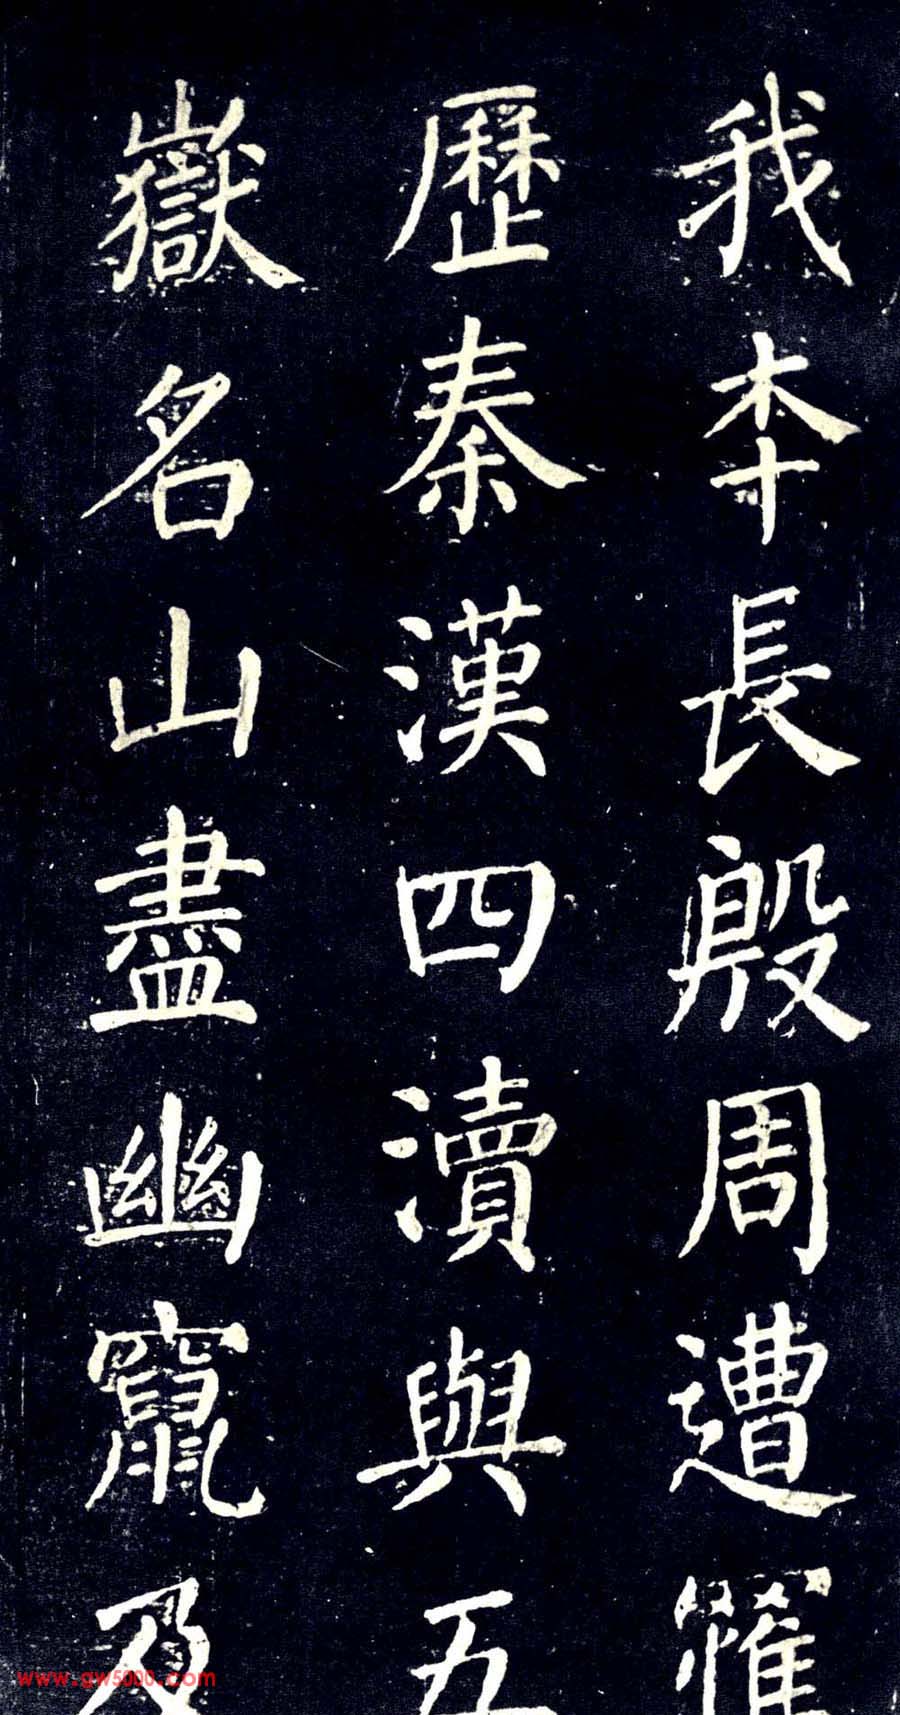 我本長殷周遭罹
歷秦漢四瀆與五
嶽名山盡幽竄及
www.gw5000.com